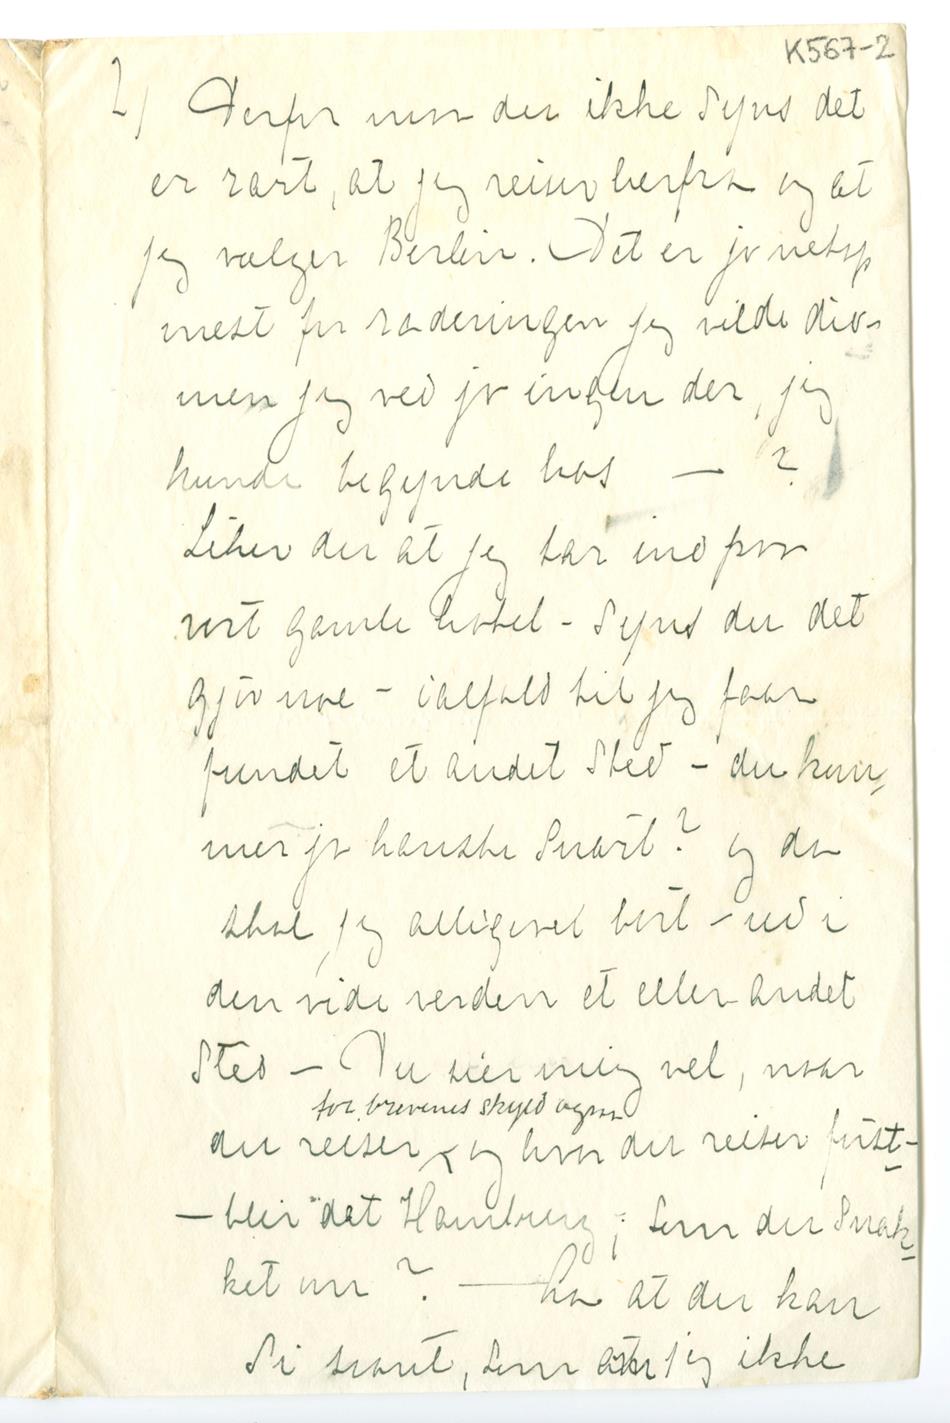 K567-2
2) Derfor maa du ikke synes det
er rart, at jeg reiser herfra og at
jeg vælger Berlin. Det er jo netop
mest for raderingen jeg vilde did -
men jeg ved jo ingen der, jeg
kunde begynde hos — ?
Liker du at jeg tar ind paa
vort gamle hotel - synes du det
gjør noe - ialfald til jeg faar
fundet et andet sted - du kom-
mer jo kanske snart? og da
skal jeg alligevel bort - ud i
den vide verden et eller andet
sted — Du sier mig vel, naar
for brevenes skyld ogsaa
du reiser og hvor du reiser først -
— blir det Hamburg, som du snak-
ket om ? — ha at du kan
si saant, som at jeg ikke